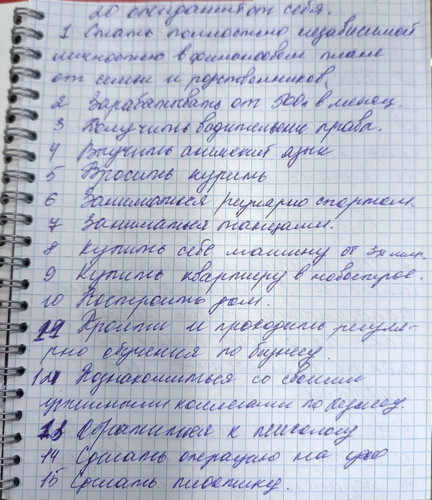 20 ожиданий от себя.
1 Стать полностью независимой
личностью в финансовом плане
от семьи и родственников
2 Зарабатывать от 500к в месяц.
3 Получить водительские права.
4 Выучить английский язык
5 Бросить курить
6 Заниматься регулярно спортом.
7 Заниматься танцами.
8 Купить себе машину от 3х млн.
9 Купить квартиру в новострое.
10 Построить дом.
11 Пройти и проходить регуля-
рно обучения по бизнесу.
12 Познакомиться со своими
успешными коллегами по
13 Обратиться к психологу
14 Сделать операцию на
15 Сделать пластику.